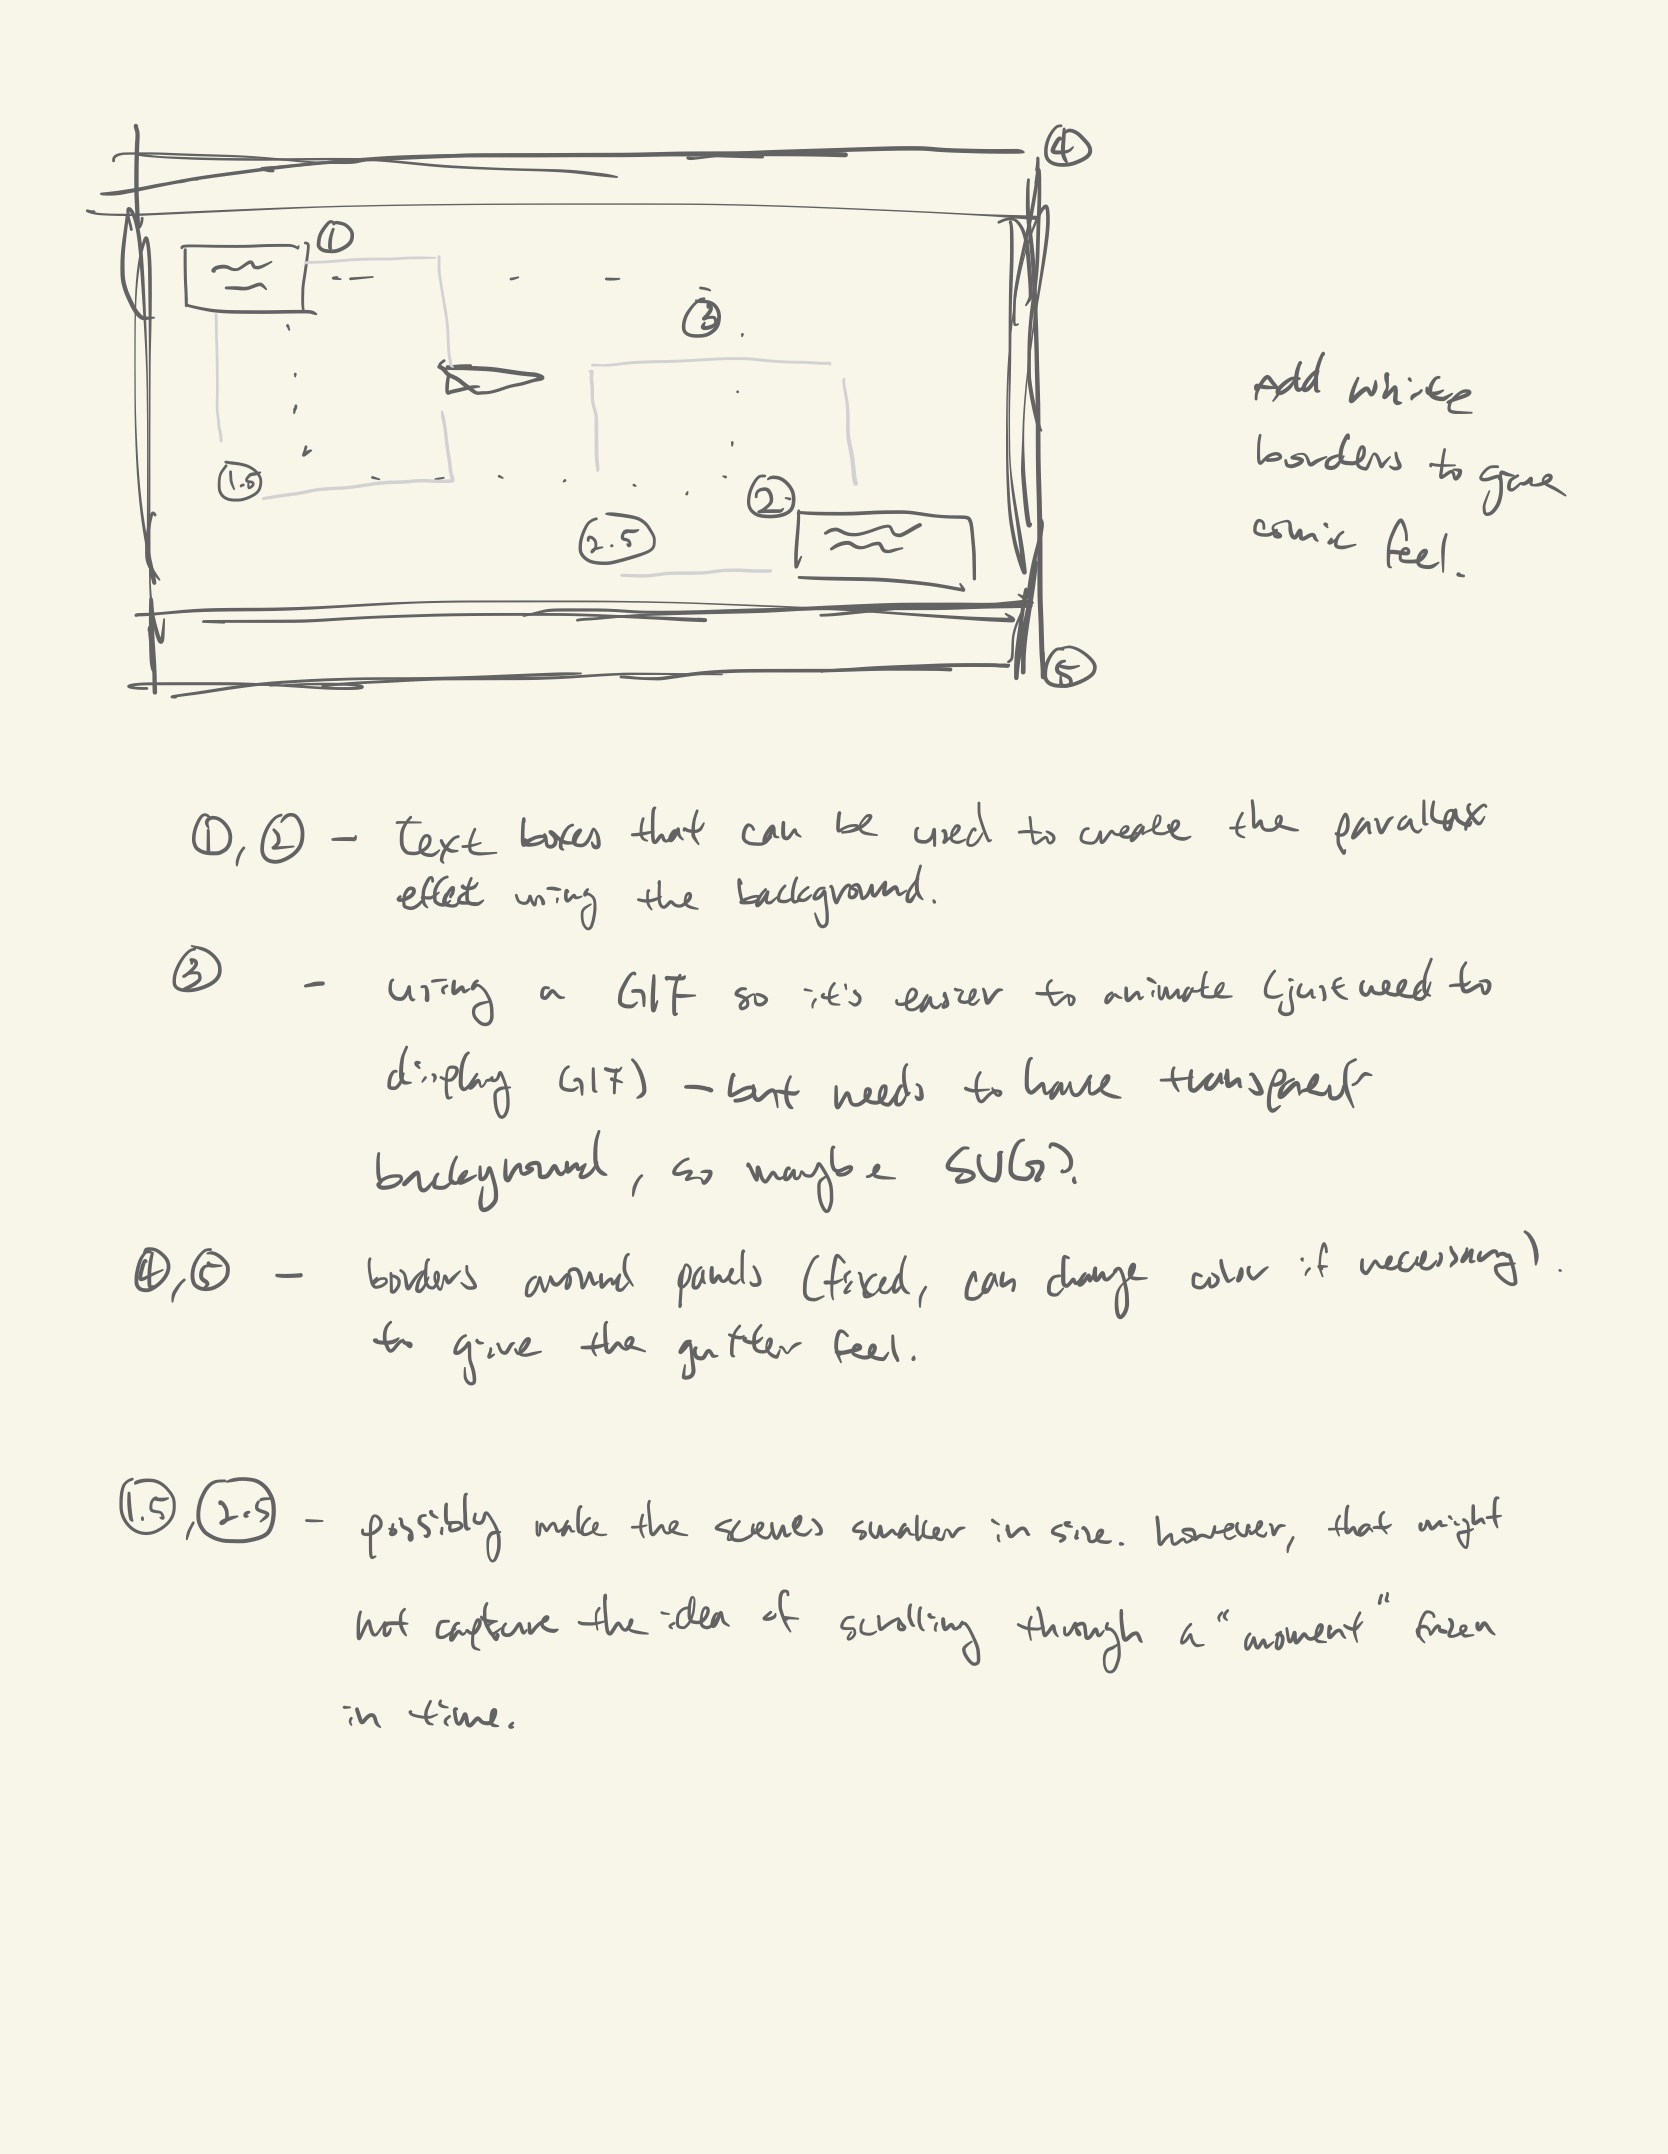 4
1
3
1.5
2
2.5
5
Add white
borders to give
comic feel.
1, 2 - text boxes that can be used to create the parallax
effect using the background.
3 - using a GIF so it's easier to animate (just need to
display GIF) - but needs to have transparent
background, so maybe SVG?
4, 5 - borders around panels (fixed, can change color if necessary)
to give the gutter feel.
1.5, 2.5 - possibly make the scenes smaller in size. however, that might
not capture the idea of scrolling through a "moment" frozen
in time.